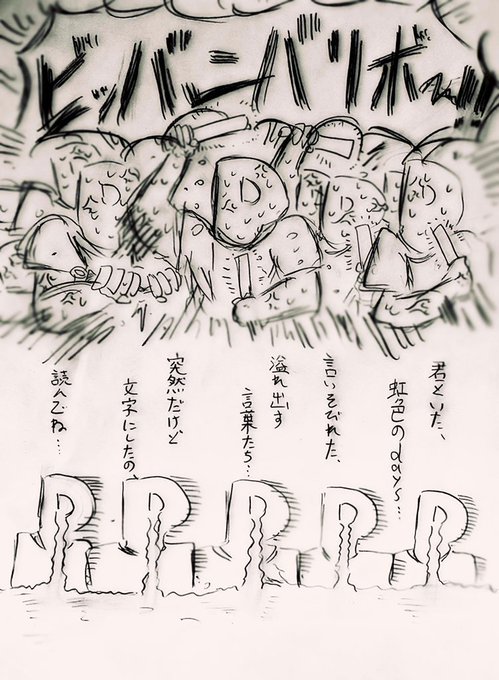 ビバニバリオ〜
君といた、
虹色のdays…
言いそびれた、
溢れ出す
言葉たち…
突然だけど
文字にしたの、
読んでね…